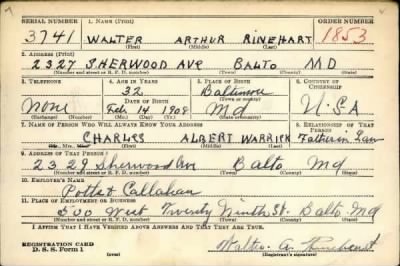 SERIAL NUMBER 1. NAME (Print) ORDER NUMBER
3741 WALTER ARTHUR RINEHART 1853
(First) (Middle) (Last)
2. ADDRESS (Print)
2327 SHERWOOD AVE BALTO MD
(Number and street or R. F. D. number) (Town) (County) (State)
3. TELEPHONE 4. AGE IN YEARS 5. PLACE OF BIRTH 6. COUNTRY OF CITIZENSHIP
32 Baltimore
DATE OF BIRTH (Town or county)
None Feb 14 1908 Md USA
(Exchange) (Number) (Mo.) (Day) (Yr.) (State or country)
7. NAME OF PERSON WHO WILL ALWAYS KNOW YOUR ADDRESS 8. RELATIONSHIP OF THAT PERSON
CHARLES ALBERT WARRICK Father in Law
(Mr., Mrs., Miss) (First) (Middle) (Last)
9. ADDRESS OF THAT PERSON
2329 Sherwood Ave Balto Md
(Number and street or R. F. D. number) (Town) (County) (State)
10. EMPLOYER'S NAME
Callahan
11. PLACE OF EMPLOYMENT OR BUSINESS
500 West Twenty Ninth St. Balto. Md
(Number and street or R. F. D. number) (Town) (County) (State)
I AFFIRM THAT I HAVE VERIFIED ABOVE ANSWERS AND THAT THEY ARE TRUE.
REGISTRATION CARD
D. S. S. Form 1 Walter A. Rinehart
(over) (Registrant's signature)